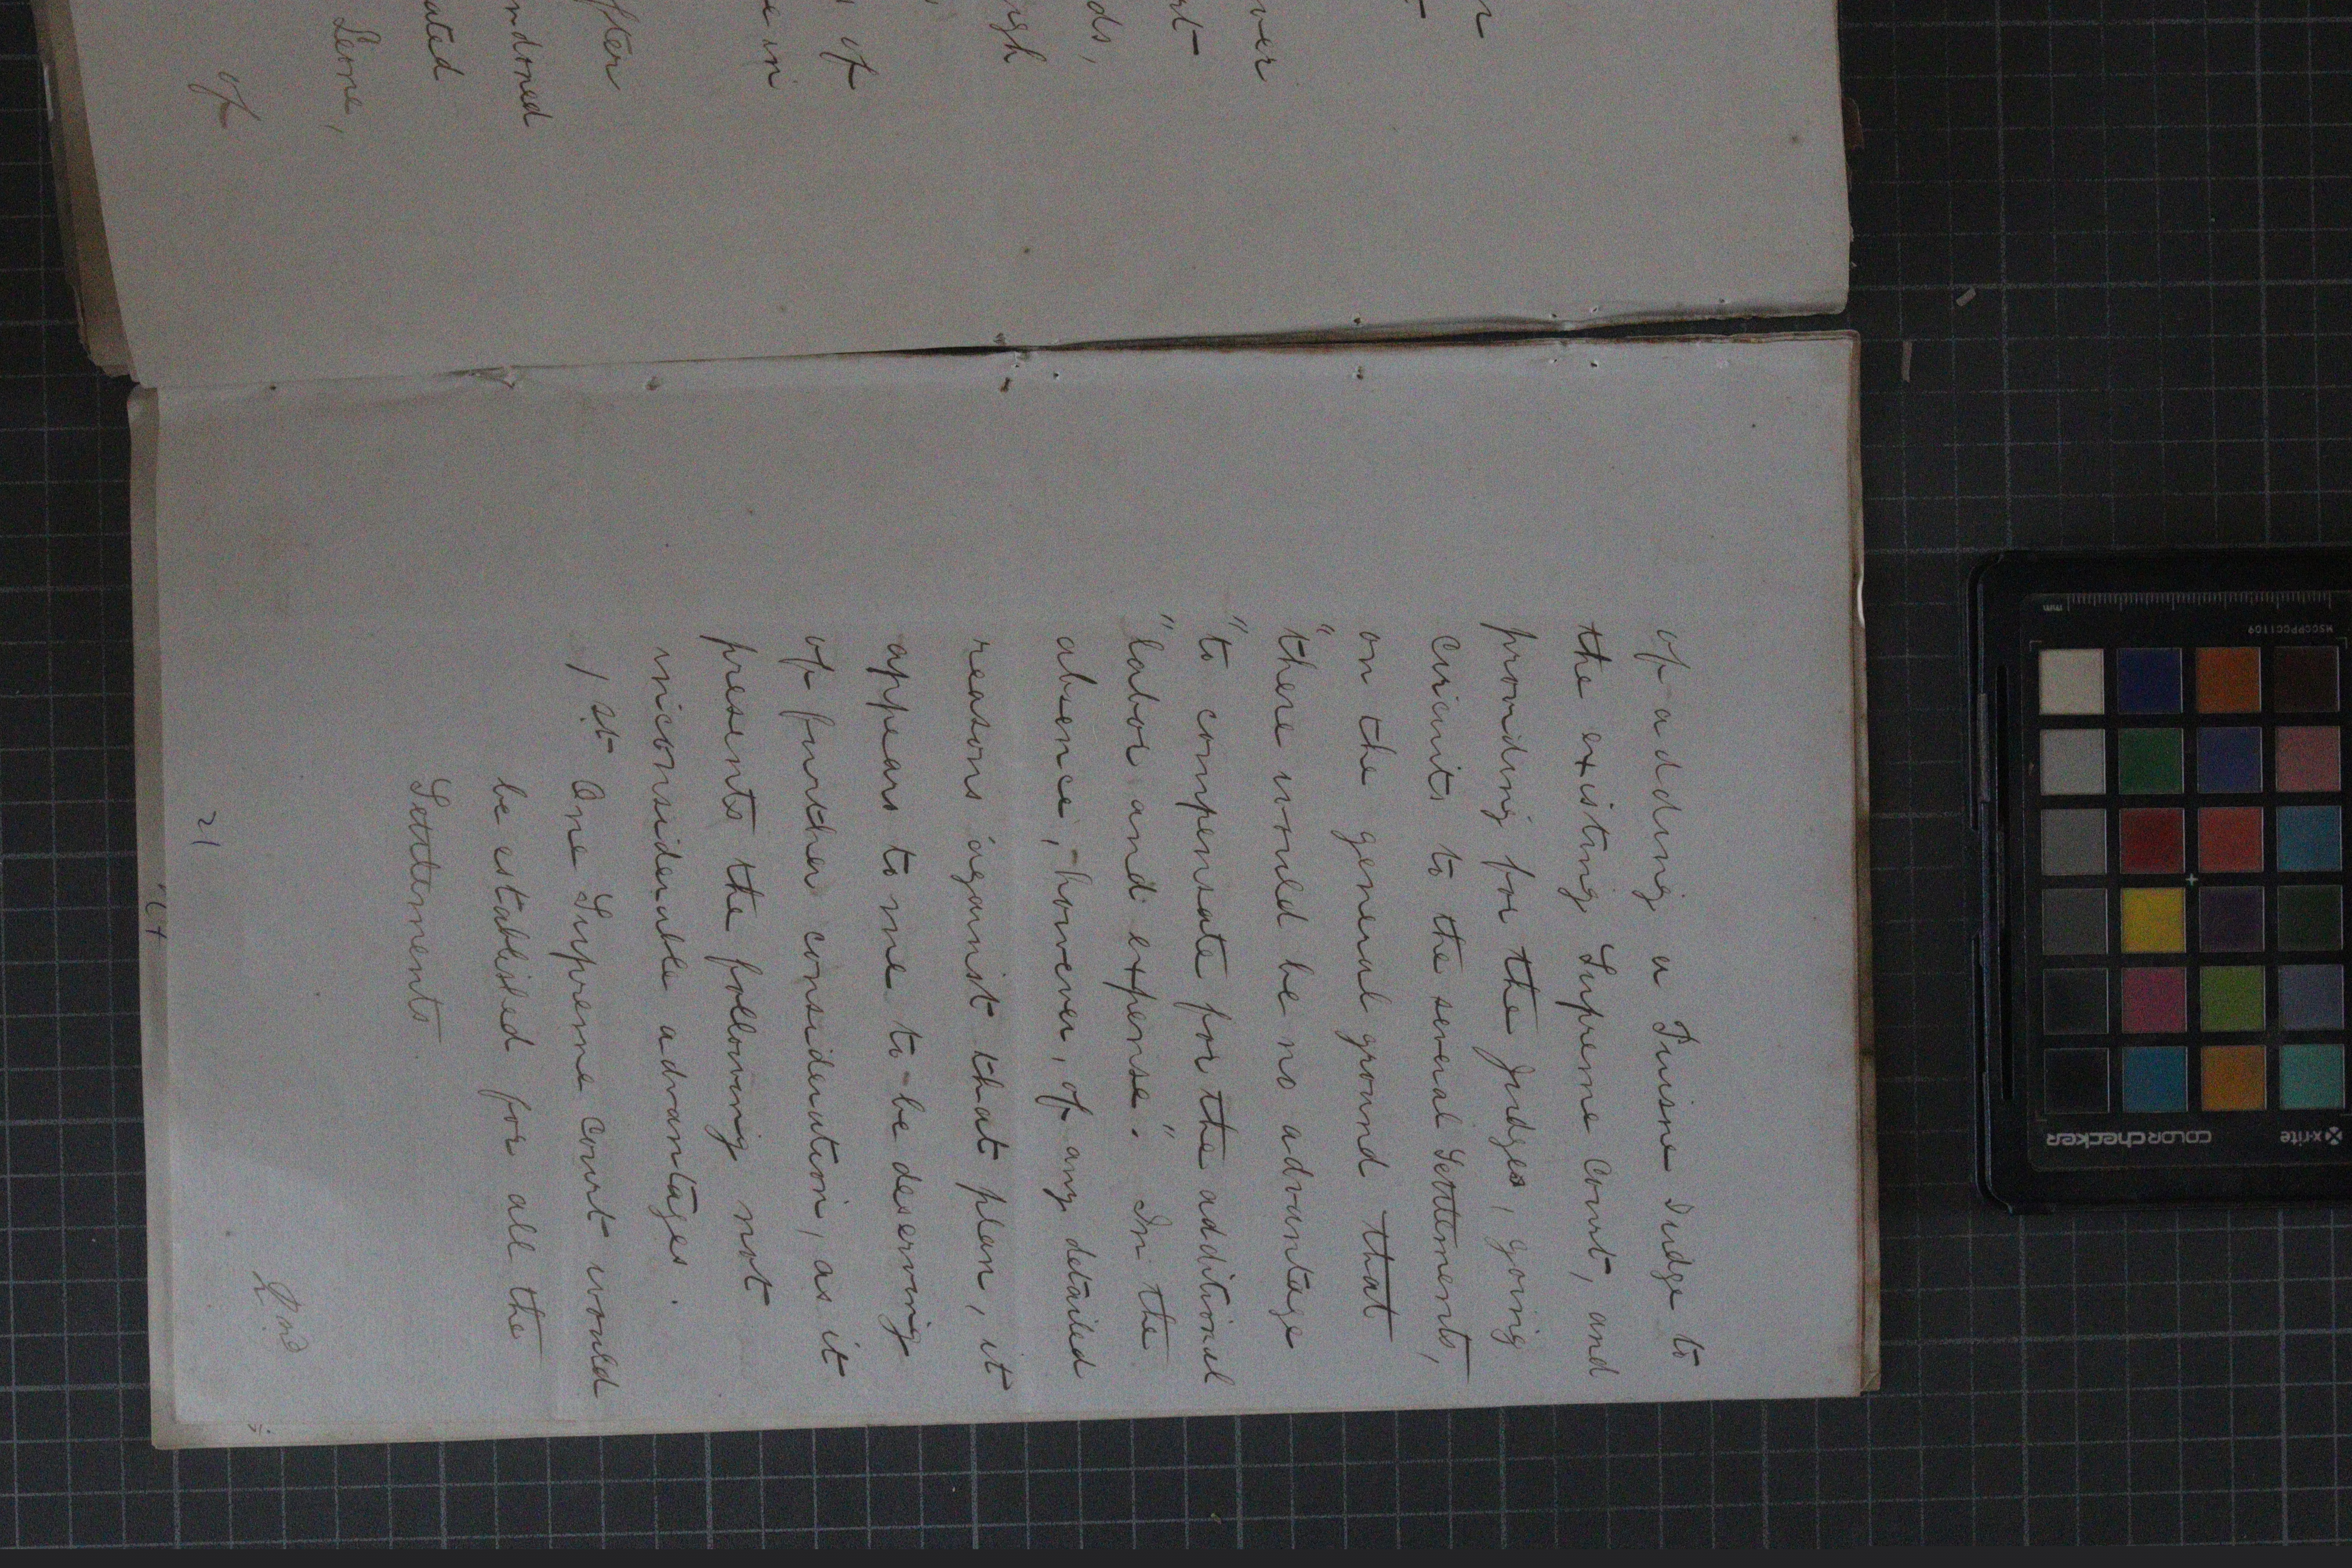 r
over
rt
ds,
ugh
of
e in
after
ndoned
ated
Leone,
of
of adding a Puisne Judge to
the existing Supreme Court, and
providing for the Judges, going
circuits to the several Settlements,
on the general ground that
"there would be no advantage
"to compensate for the additional
"labor and expense". In the
absence, however, of any detailed
reasons against that plan, it
appears to me to be deserving
of further consideration, as it
presents the following not
inconsiderable advantages.
1st. One Supreme Court would
be established for all the
Settlements
2nd
21
x-rite
colorchecker
MSCCPPCC1109
mm